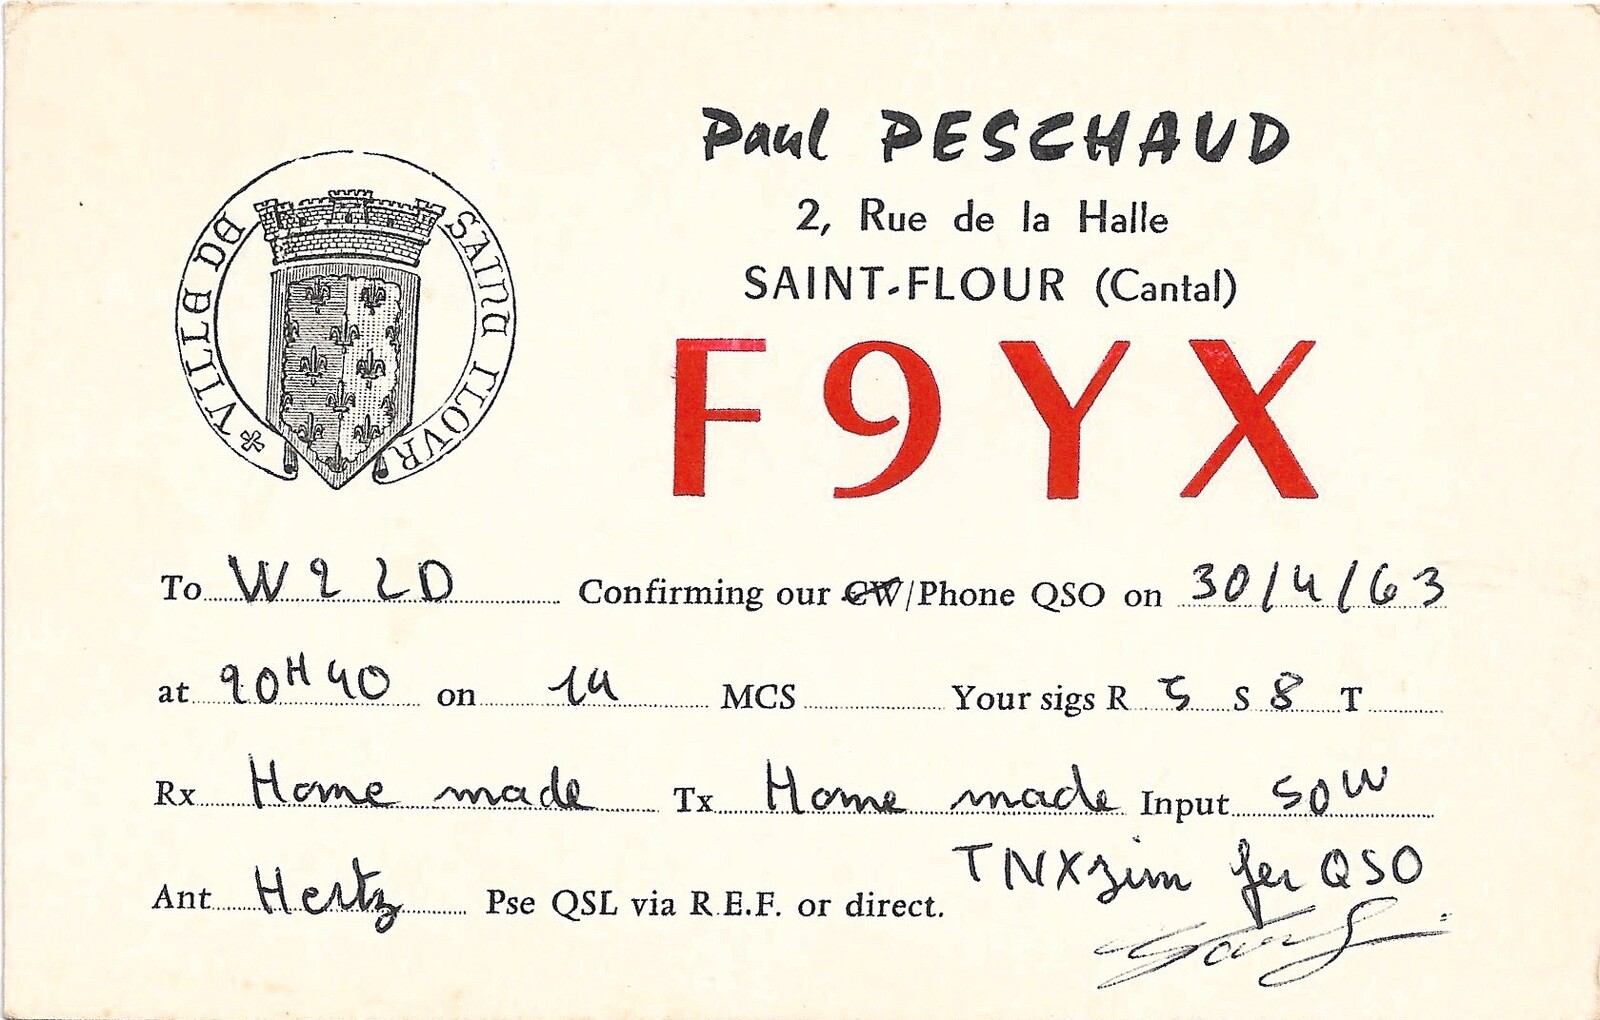 Paul PESCHAUD
2, Rue de la Halle
SAINT-FLOUR (Cantal)
* VILLE DE SAINT FLOVR
F9YX
To W2LD Confirming our CW/Phone QSO on 30/4/63
at 20H40 on 14 MCS Your sigs R 5 S 8 T
Rx Home made Tx Home made Input 50W
TNX jim fer QSO
Ant Hertz Pse QSL via R.E.F. or direct.
Paul